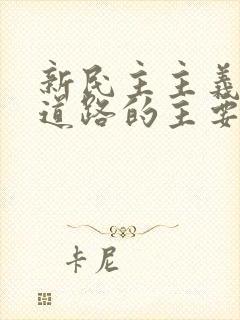 新民主主義
道路的主要
卡尼